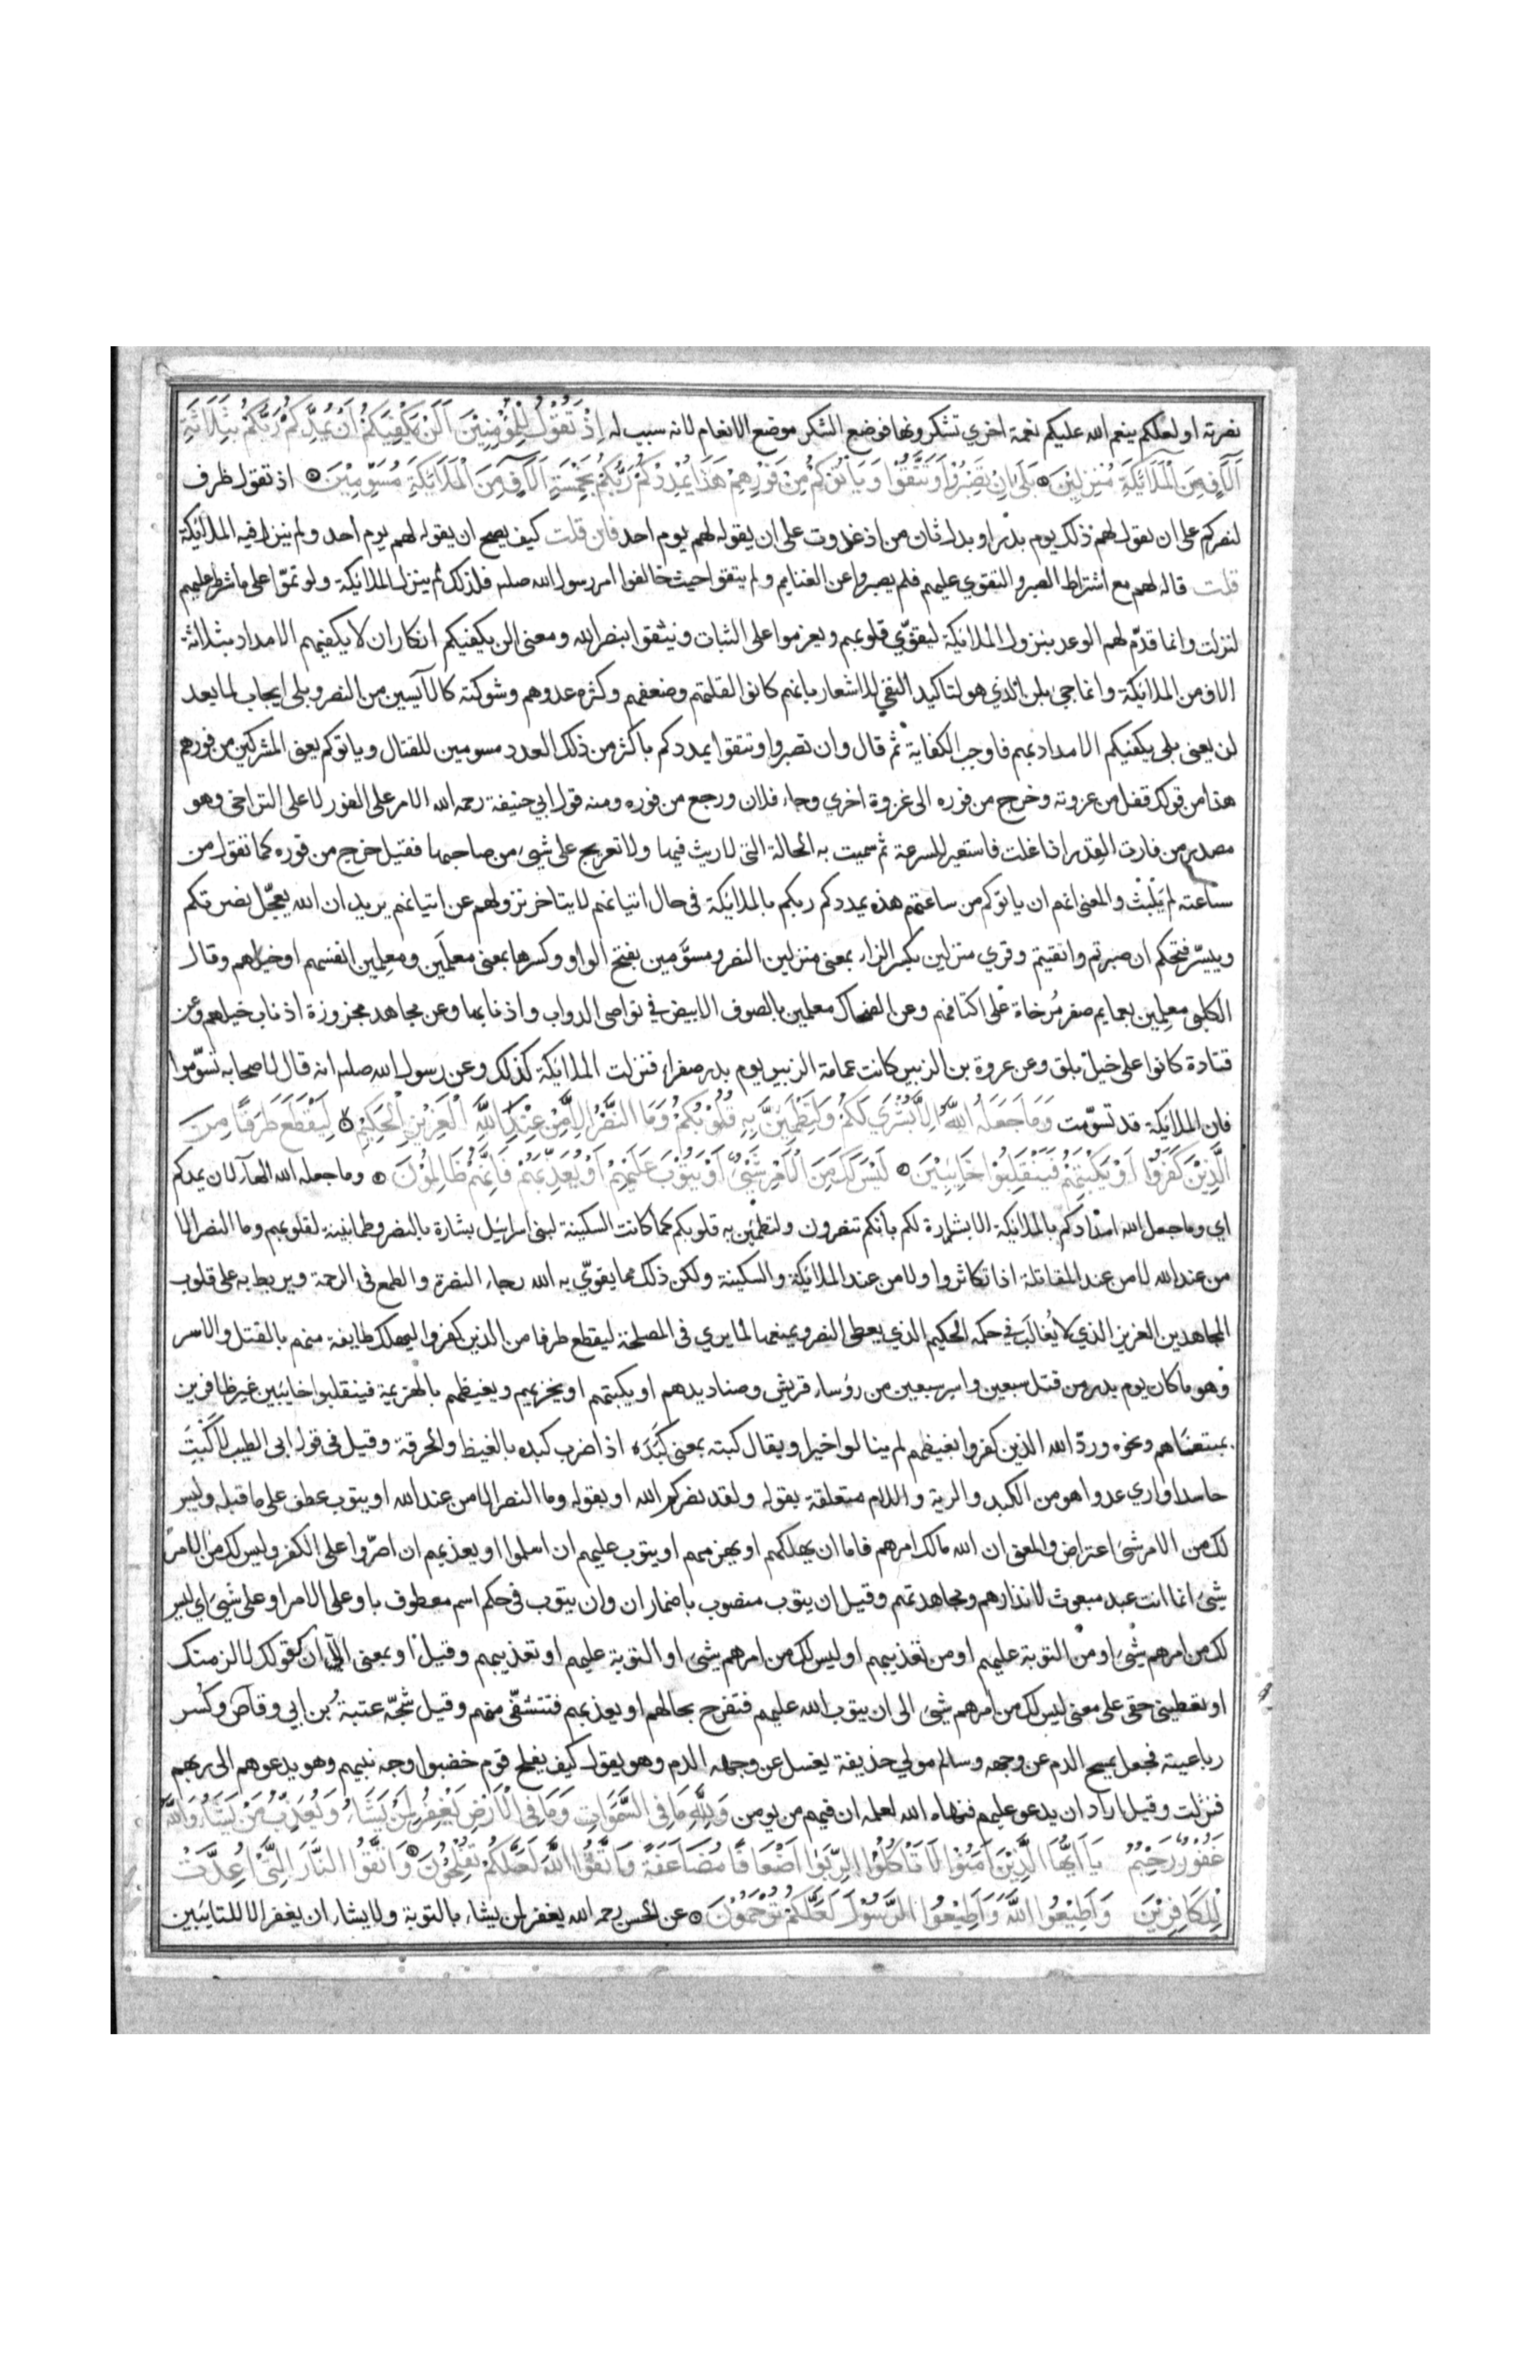 نصرته او لعلكم ينعم الله عليكم نعمة اخري تشكرونها فوضع الشكر موضع الانعام لانه سبب له اِذْ تَقُوْلُ لِلْمُؤْمِنِيْنَ اَلَنْ يَكْفِيَكُمْ اَنْ يُمِدَّكُمْ رَبُّكُمْ بِثَلَاثَةِ
آلَافٍ مِنَ الْمَلَآئِكَةِ مُنْزَلِيْنَ بَلَى اِنْ تَصْبِرُوْا وَتَتَّقُوْا وَيَأْتُوْكُمْ مِنْ فَوْرِهِمْ هَذَا يُمْدِدْكُمْ رَبُّكُمْ بِخَمْسَةِ آلَافٍ مِنَ الْمَلَآئِكَةِ مُسَوِّمِيْنَ اذ تقول ظرف
لنصركم على ان يقول لهم ذلك يوم بدر او بدل ثان من اذ غدوت على ان يقوله لهم يوم احد فان قلت كيف يصح ان يقوله لهم يوم احد ولم ينزل فيه الملائكة
قلت قاله لهم مع اشتراط الصبر والتقوي عليهم فلم يصبروا عن الغنايم ولم يتقوا حيث خالفوا امر رسول الله صلعم فلذلك لم ينزل الملائكة ولو تموّا على ما شرط عليهم
لنزلت وانما قدّم لهم الوعد بنزول الملائكة ليقوّي قلوبهم ويعزموا على الثبات ويثقوا بنصر الله ومعنى الن يكفيكم انكار ان لا يكفيهم الامداد بثلاثة
الاف من الملائكة وانما جئ بلن الذي هو لتاكيد النفي للاشعار بانهم كانوا لقلتهم وضعفهم وكثرة عدوهم وشوكته كالآيسين من النصر وبلى ايجاب لما بعد
لن يعنى بلى يكفيكم الامداد بهم فاوجب الكفاية ثم قال وان تصبروا وتتقوا يمددكم باكثر من ذلك العدد مسومين للقتال وياتوكم يعنى المشركين من فورهم
هذا من قولك قفل من غزوته وخرج من فوره الى غزوة اخري وجاء فلان ورجع من فوره ومنه قول ابي حنيفة رحمه الله الامر على الفور لا على التراخي وهو
مصدر من فارت القدر اذا غلت فاستعير للسرعة ثم سميت به الحالة التى لا ريث فيها ولا تعريج على شيئ من صاحبها فقيل خرج من فوره كما تقول من
ساعته لم يَلْبَثْ والمعنى انهم ان ياتوكم من ساعتهم هذه يمددكم ربكم بالملائكة فى حال اتيانهم لا يتاخر نزولهم عن اتيانهم يريد ان الله يعجّل نصرتكم
وييسّر فتحكم ان صبرتم واتقيتم وقري منزلين بكسر الزاء بمعنى منزلين النصر ومسوَّمين بفتح الواو وكسرها بمعنى معلَمين ومعلِمين انفسهم او خيلهم وقال
الكلبى معلِمين بعمايم صفر مُرخاة على اكتافهم وعن الضحاك معلمين بالصوف الابيض في نواصى الدواب واذنابها وعن مجاهد مجزوزة اذناب خيلهم وعن
قتادة كانوا على خيل بلق وعن عروة بن الزبير كانت عمامة الزبير يوم بدر صفراء فنزلت الملائكة كذلك وعن رسول الله صلعم انه قال لاصحابه تسوّموا
فان الملائكة قد تسوّمت وَمَا جَعَلَهُ اللّٰهُ اِلَّا بُشْرَى لَكُمْ وَلِتَطْمَئِنَّ بِهِ قُلُوْبُكُمْ وَمَا النَّصْرُ اِلَّا مِنْ عِنْدِ اللّٰهِ الْعَزِيْزِ الْحَكِيْمِ لِيَقْطَعَ طَرَفًا مِنَ
الَّذِيْنَ كَفَرُوْا اَوْ يَكْبِتَهُمْ فَيَنْقَلِبُوْا خَائِبِيْنَ لَيْسَ لَكَ مِنَ الْاَمْرِ شَيْئٌ اَوْ يَتُوْبَ عَلَيْهِمْ اَوْ يُعَذِّبَهُمْ فَاِنَّهُمْ ظَالِمُوْنَ وما جعله الله الهآء لان يمدكم
اي وما جعل الله امدادكم بالملائكة الا بشارة لكم بانكم تنصرون ولتطمئن به قلوبكم كما كانت السكينة لبنى اسرائيل بشارة بالنصر وطمانينة لقلوبهم وما النصر الا
من عند الله لا من عند المقاتلة اذا تكاثروا ولا من عند الملائكة والسكينة ولكن ذلك مما يقوّي به الله رجاء النصرة والطمع فى الرحمة ويربط به على قلوب
المجاهدين العزيز الذي لا يُغالَب في حكمه الحكيم الذي يعطى النصر ويمنعها لما يري فى المصلحة ليقطع طرفا من الذين كفروا ليهلك طايفة منهم بالقتل والاسر
وهو ما كان يوم بدر من قتل سبعين واسر سبعين من رؤساء قريش وصناديدهم او يكبتهم او يخزيهم ويغيظهم بالهزيمة فينقلبوا خايبين غير ظافرين
بمبتغاهم ونحوه وردّ الله الذين كفروا بغيظهم لم ينالوا خيرا ويقال كبته بمعنى كَبَدَه اذا ضرب كبده بالغيظ والحرقة وقيل فى قول ابى الطيب لاكبتَ
حاسدا واري عدوا هو من الكبد والرية واللام متعلقة بقوله ولقد نصركم الله او بقوله وما النصر الا من عند الله او يتوب عطف على ما قبله وليس
لك من الامر شيئ اعتراض والمعنى ان الله مالك امرهم فاما ان يهلكهم او يهزمهم او يتوب عليهم ان اسلموا او يعذبهم ان اصرّوا على الكفر وليس لك من الامر
شيئ انما انت عبد مبعوث لانذارهم ومجاهدتهم وقيل ان يتوب منصوب باضمار ان وان يتوب فى حكم اسم معطوف باو على الامر او على شيئ اي ليس
لك من امرهم شيئ او من التوبة عليهم او من تعذيبهم او ليس لك من امرهم شيئ او التوبة عليهم او تعذيبهم وقيل او بمعنى الّا ان كقولك لالزمنك
او تعطينى حقى على معنى ليس لك من امرهم شيئ الى ان يتوب الله عليهم فتفرح بحالهم او يعذبهم فتتشفّى منهم وقيل شجّه عتبة بن ابي وقاص وكسر
رباعيته فجعل يمسح الدم عن وجهه وسالم مولي حذيفة يغسل عن وجهه الدم وهو يقول كيف يفلح قوم خضبوا وجه نبيهم وهو يدعوهم الى ربهم
فنزلت وقيل اراد ان يدعو عليهم فنهاه الله لعلمه ان فيهم من يومن وَلِلّٰهِ مَا فِى السَّمٰوَاتِ وَمَا فِى الْاَرْضِ يَغْفِرُ لِمَنْ يَشَاءُ وَيُعَذِّبُ مَنْ يَشَاءُ وَاللّٰهُ
غَفُوْرٌ رَحِيْمٌ يَا اَيُّهَا الَّذِيْنَ اٰمَنُوْا لَا تَأْكُلُوْا الرِّبٰوا اَضْعَافًا مُضَاعَفَةً وَاتَّقُوْا اللّٰهَ لَعَلَّكُمْ تُفْلِحُوْنَ وَاتَّقُوْا النَّارَ الَّتِيْ اُعِدَّتْ
لِلْكَافِرِيْنَ وَاَطِيْعُوْا اللّٰهَ وَاَطِيْعُوْا الرَّسُوْلَ لَعَلَّكُمْ تُرْحَمُوْنَ عن الحسن رحمه الله يغفر لمن يشاء بالتوبة ولا يشاء ان يغفر الا للتايبين